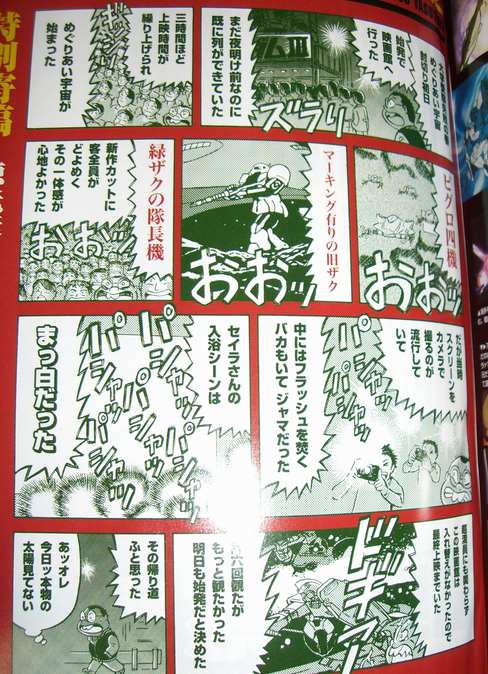 めぐりあい宇宙
封切り初日
始発で
映画館へ
行った
まだ夜明け前なのに
既に列ができていた
ズラリ
三時間ほど
上映時間が
繰り上げられ
めぐりあい宇宙が
始まった
ビグロ四機
うおおッ
マーキング有りの旧ザク
おおッ
緑ザクの隊長機
新作カットに
客全員が
どよめく
その一体感が
心地よかった
おおッ
だが当時
スクリーンを
カメラで
撮るのが
流行して
いて
中にはフラッシュを焚く
バカもいてジャマだった
セイラさんの
入浴シーンは
パシャッ
パシャッ
パシャッ
パシャッ
まっ白だった
超満員にも関わらず
この映画館は
入れ替えがなかったので
最終上映までいた
ドッギァー
六回観たが
もっと観たかった
明日も始発だと決めた
その帰り道
ふと思った
あッオレ
今日ッ本物の
太陽見てない
特別寄稿